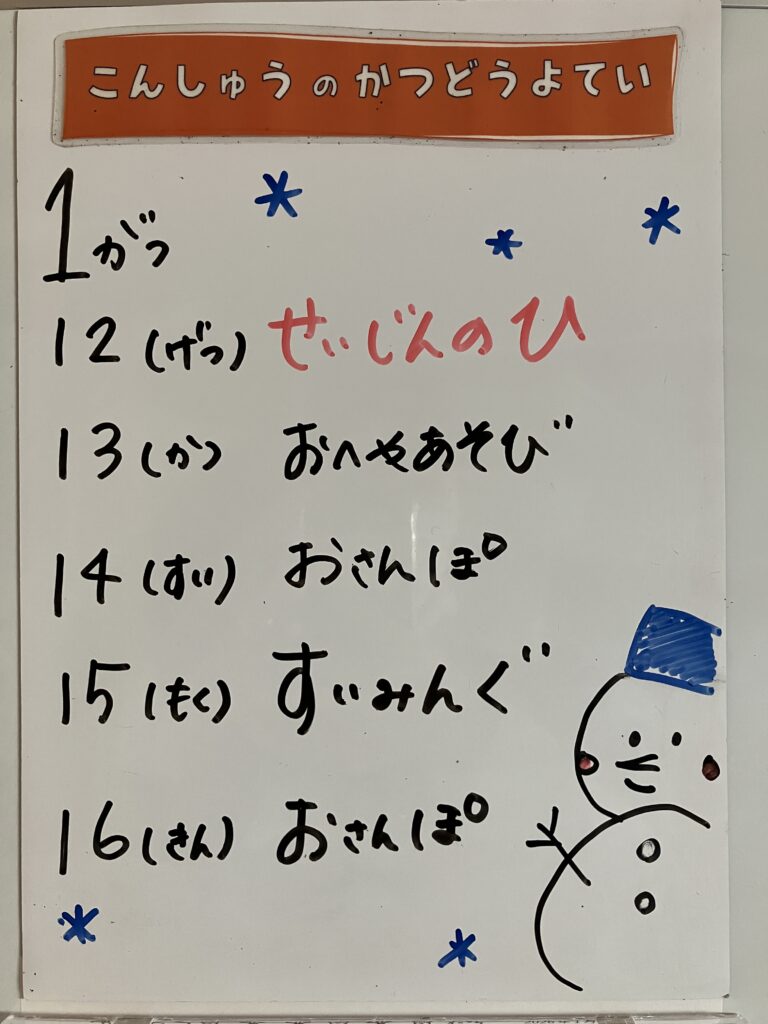 こんしゅうのかつどうよてい
1がつ
12(げつ) せいじんのひ
13(かつ おへやあそび
14(すい) おさんぽ
15(もく) すいみんぐ
16(きん) おさんぽ